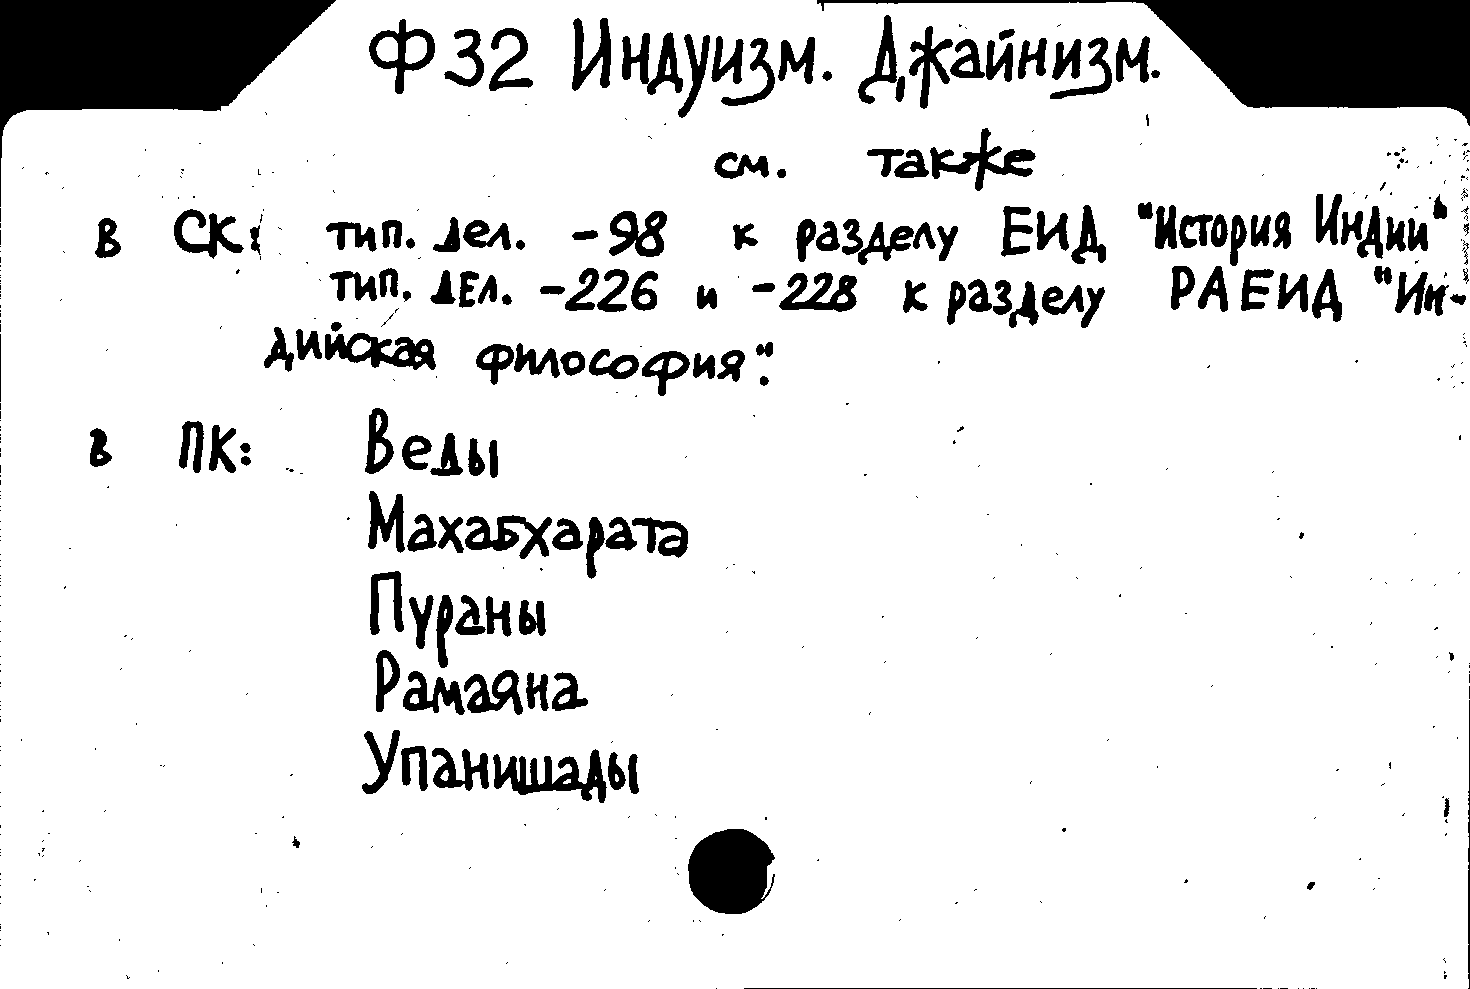 Ф32 Индуизм. Джайнизм.
см. также
в СК: тип. дел. -98 к разделу ЕИД "История Индии"
тип. дел. -226 и -228 к разделу РАЕИД "Ин-
дийская философия".
в ПК: Веды
Махабхарата
Пураны
Рамаяна
Упанишады